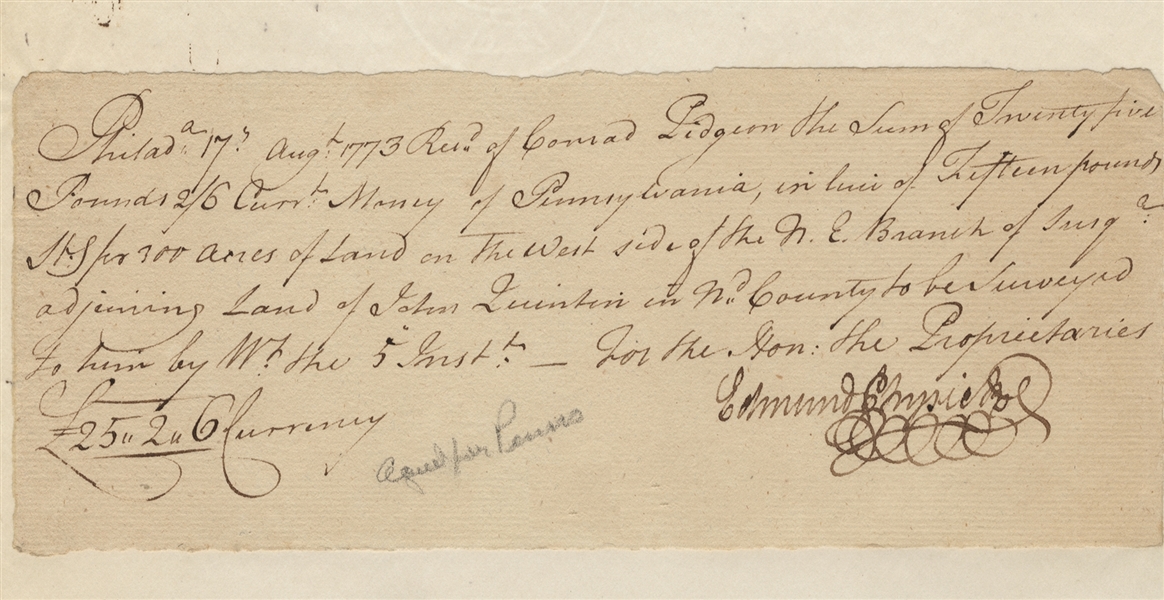 Philada 17th Augt 1773 Recd of Conrad Pidgeon the Sum of Twenty five
Pounds 2/6 Currt Money of Pennsylvania, in lieu of Fifteen pounds
Stg for 300 acres of Land on the West side of the N. E. Branch of Susqa
adjoining Land of John Quinten in Nd County to be Survey'd
to him by Wt the 5th Instt — For the Hon: the Proprietaries
£25" 2" 6 Currency
Edmund Physick
Agent for Penns